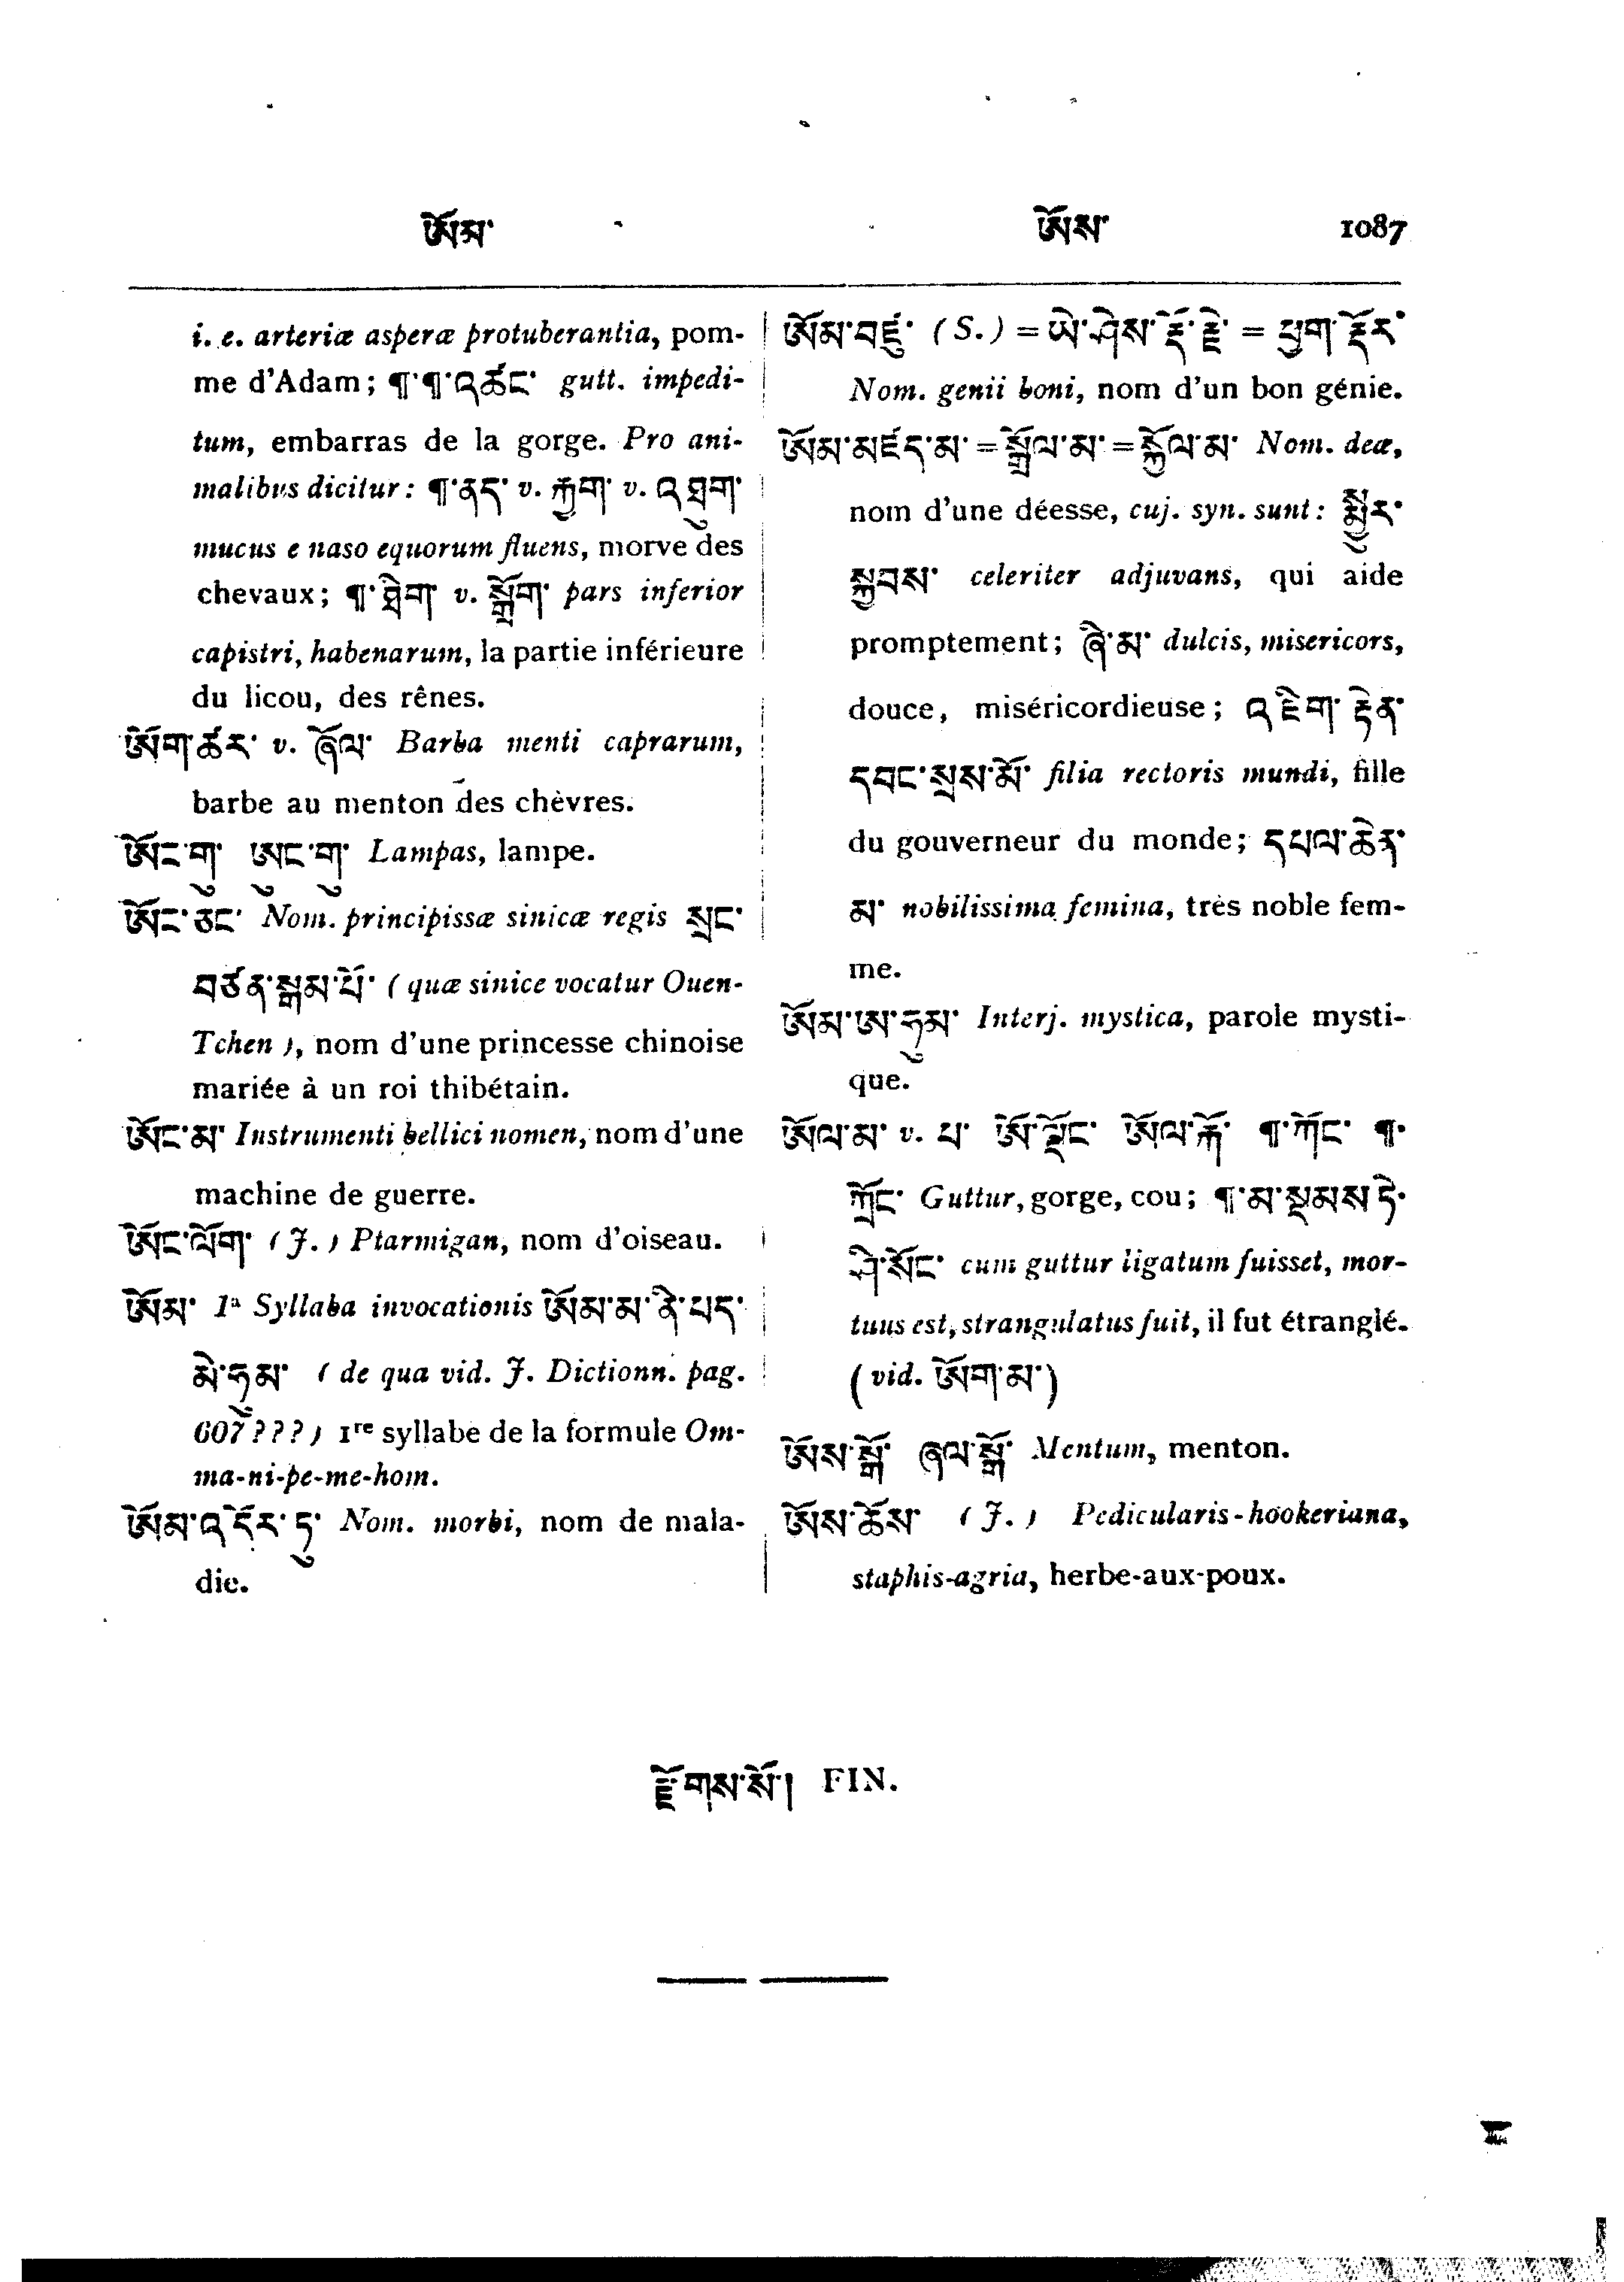 ཨོམ་
ཨོས་ 1087
i. e. arteriæ asperæ protuberantia, pom-
me d'Adam; ¶་¶་འཚང་ gutt. impedi-
tum, embarras de la gorge. Pro ani-
malibus dicitur: ¶་ནད་ v. རྐྱག་ v. འཐུག་
mucus e naso equorum fluens, morve des
chevaux; ¶་ཐིག་ v. སྒྲོག་ pars inferior
capistri, habenarum, la partie inférieure
du licou, des rênes.
ཨོག་ཚར་ v. ཞོལ་ Barba menti caprarum,
barbe au menton des chèvres.
ཨོང་གུ་ ཨུང་གུ་ Lampas, lampe.
ཨོང་ཅང་ Nom. principissæ sinicæ regis སྲང་
བཙན་སྒམ་པོ་ (quæ sinice vocatur Ouen-
Tchen), nom d'une princesse chinoise
mariée à un roi thibétain.
ཨོང་མ་ Instrumenti bellici nomen, nom d'une
machine de guerre.
ཨོང་ལོག་ (J.) Ptarmigan, nom d'oiseau.
ཨོམ་ 1ª Syllaba invocationis ཨོམ་མ་ནི་པད་
མེ་ཧུམ་ (de qua vid. J. Dictionn. pag.
607???) 1re syllabe de la formule Om-
ma-ni-pe-me-hom.
ཨོམ་འདོར་དུ་ Nom. morbi, nom de mala-
die.
ཨོམ་བཛུ་ (S.) = ཡེ་ཤེས་རྡོ་རྗེ་ = ཕྱག་རྡོར་
Nom. genii boni, nom d'un bon génie.
ཨོམ་མཛད་མ་ = སྒྲོལ་མ་ = སྐྱོལ་མ་ Nom. deæ,
nom d'une déesse, cuj. syn. sunt: སྨྱུར་
སྐྱབས་ celeriter adjuvans, qui aide
promptement; ཞི་མ་ dulcis, misericors,
douce, miséricordieuse; འཇིག་རྟེན་
དབང་སྲས་མོ་ filia rectoris mundi, fille
du gouverneur du monde; དཔལ་ཆེན་
མ་ nobilissima femina, très noble fem-
me.
ཨོམ་ཨ་ཧུམ་ Interj. mystica, parole mysti-
que.
ཨོལ་མ་ v. པ་ ཨོ་ལྡོང་ ཨོལ་རྐོ་ ¶་ཀོང་ ¶་
ཀྲོང་ Guttur, gorge, cou; ¶་མ་སྡམས་ཏེ་
ཤི་སོང་ cum guttur ligatum fuisset, mor-
tuus est, strangulatus fuit, il fut étranglé.
(vid. ཨོག་མ་)
ཨོས་སྒོ་ ཞལ་སྒོ་ Mentum, menton.
ཨོས་ཆོས་ (J.) Pedicularis-hookeriana,
staphis-agria, herbe-aux-poux.
རྫོགས་སོ། FIN.